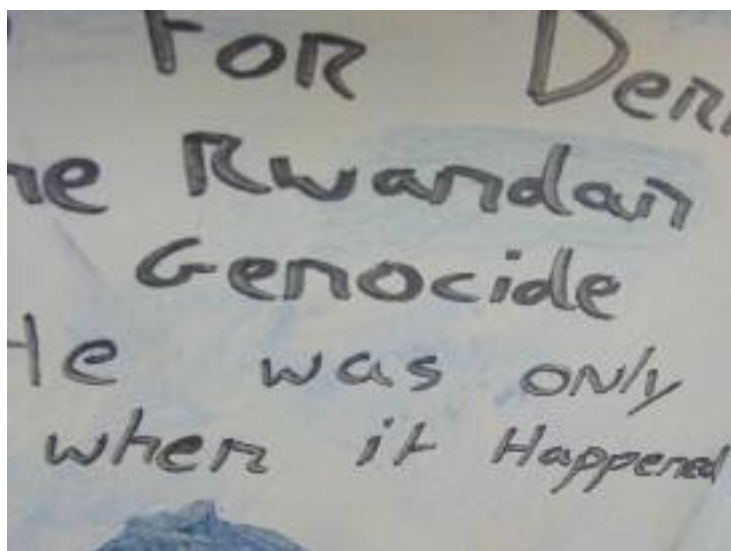 FOR
Rwandan
Genocide
He was only
when it Happened